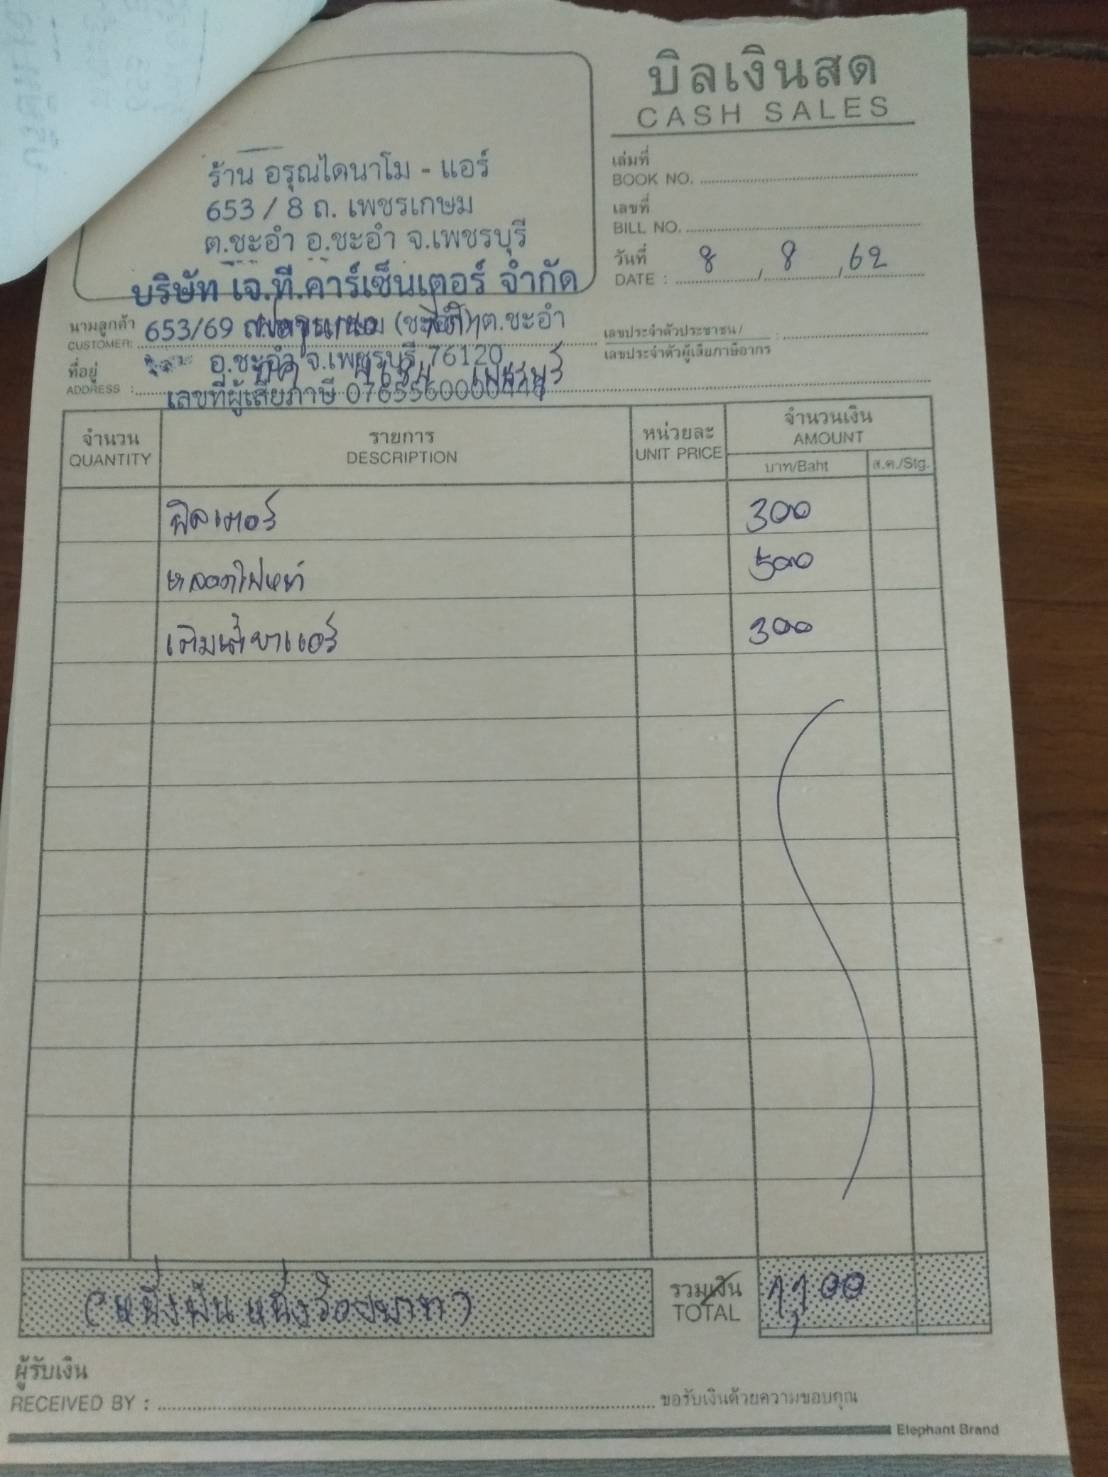 บิลเงินสด
CASH SALES
ร้าน อรุณไดนาโม - แอร์
653 / 8 ถ. เพชรเกษม
ต.ชะอำ อ.ชะอำ จ.เพชรบุรี
บริษัท เจ.ที.คาร์เซ็นเตอร์ จำกัด
เล่มที่
BOOK NO.
เลขที่
BILL NO.
วันที่
DATE : 8 / 8 / 62
นามลูกค้า
CUSTOMER:
653/69 ต.ชะอำ
ที่อยู่
ADDRESS :
อ.ชะอำ จ.เพชรบุรี 76120
เลขที่ผู้เสียภาษี
เลขประจำตัวประชาชน/
เลขประจำตัวผู้เสียภาษีอากร :
จำนวน
QUANTITY
รายการ
DESCRIPTION
หน่วยละ
UNIT PRICE
จำนวนเงิน
AMOUNT
บาท/Baht
ส.ต./Stg.
ฟิลเตอร์ 300
หลอดไฟหน้า 500
เติมน้ำยาแอร์ 300
(หนึ่งพันหนึ่งร้อยบาท)
รวมเงิน
TOTAL
1,100
ผู้รับเงิน
RECEIVED BY :
ขอรับเงินด้วยความขอบคุณ
Elephant Brand